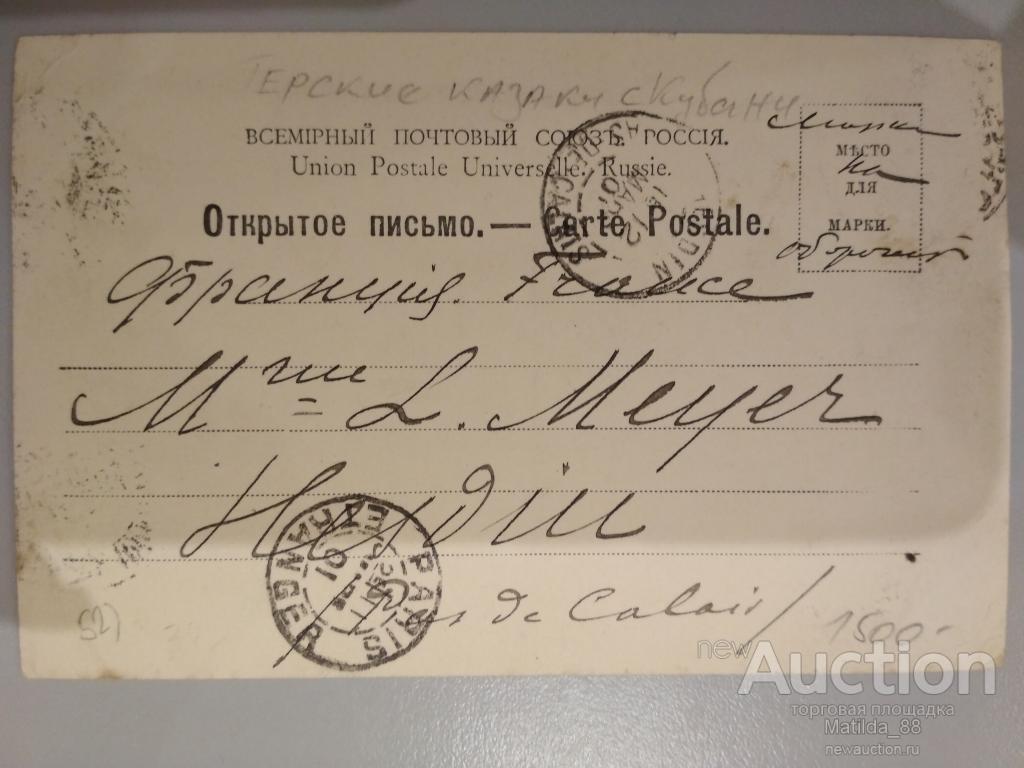 Терские казаки с Кубани
ВСЕМІРНЫЙ ПОЧТОВЫЙ СОЮЗЪ. РОССІЯ.
Union Postale Universelle. Russie.
Открытое письмо. — Carte Postale.
МѢСТО
ДЛЯ
МАРКИ.
Марка
на
оборотѣ
Франція. France
Mme L. Meyer
Hesdin
Pas de Calais
HESDIN
PAS-DE-CALAIS
MARS
01
PARIS
ETRANGER
01
52)
1500-
newAuction
торговая площадка
Matilda_88
newauction.ru